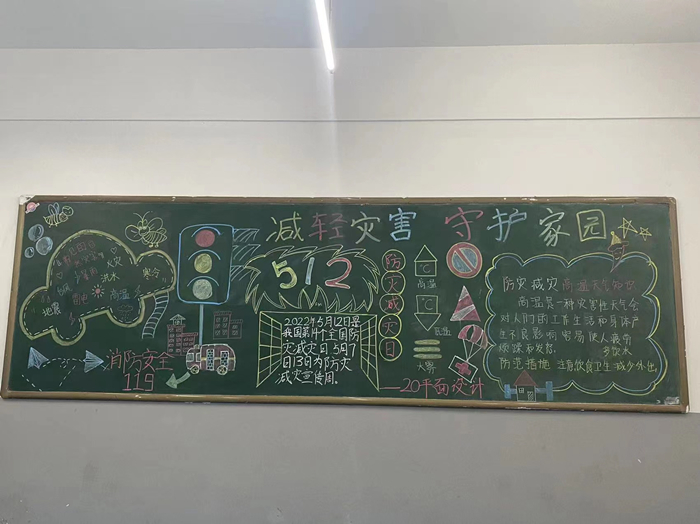 减轻灾害 守护家园
火灾
洪水
寒冷
地震
雷电
高温
消防安全
119
512
2022年5月12日是
我国第14个全国防
灾减灾日5月7
日13日为防灾
减灾宣传周。
防灾减灾日
℃
高温
℃
低温
大雾
20平面设计
防灾 减灾 高温天气知识
高温是一种灾害性天气会
对人们的工作生活和身体产
生不良影响 容易使人疲劳
烦躁和发怒
多饮水
防范措施 注意饮食卫生 减少外出